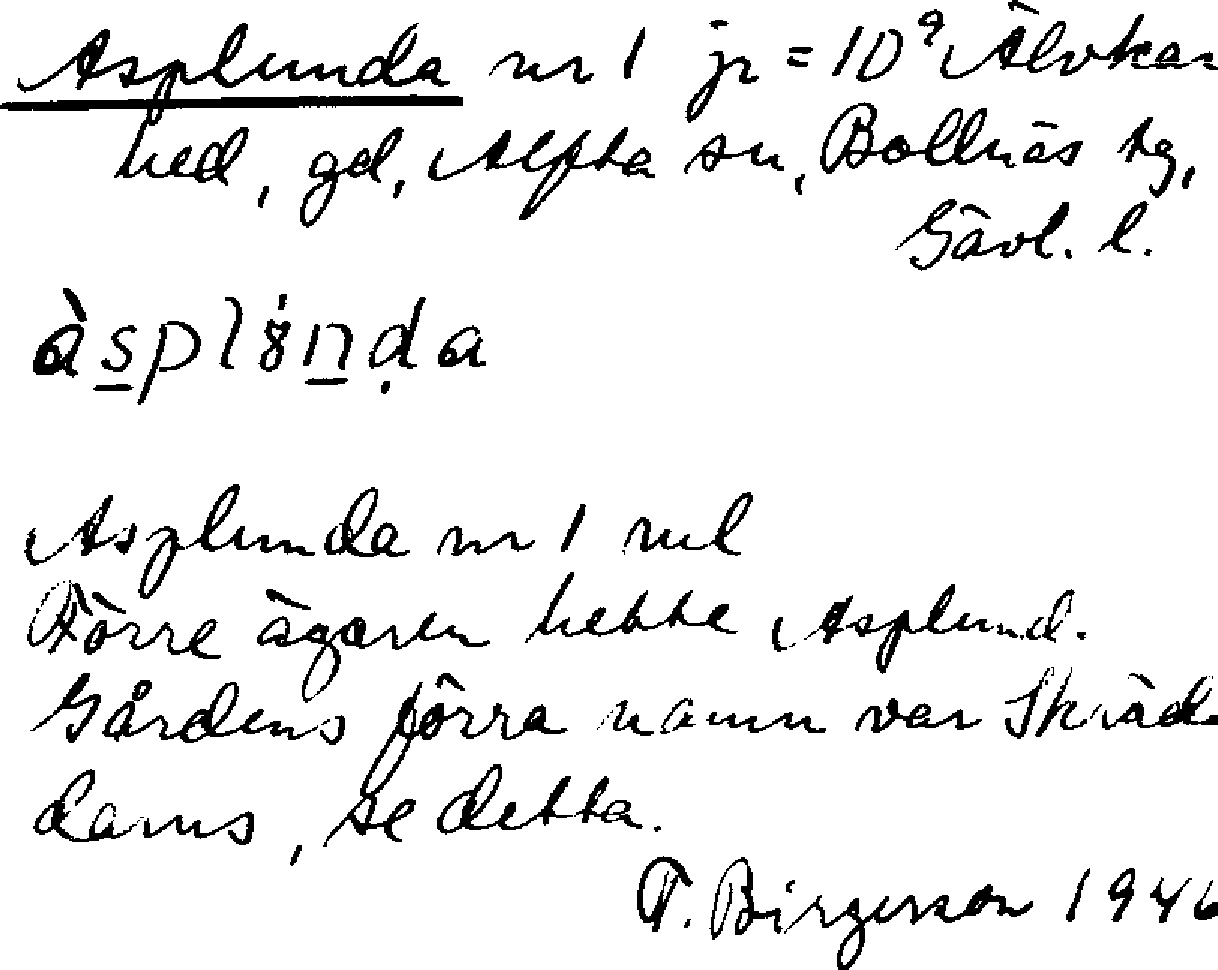 Asplunda nr 1 jr = 10⁹ Älvkar
hed, gd, Alfta sn, Bollnäs tg,
Gävl. l.
àspl8̇nḍa
Asplunda nr 1 rul
Förre ägaren hette Asplund.
Gårdens förra namn var Skräd
dams, se detta.
F. Birgerson 1946